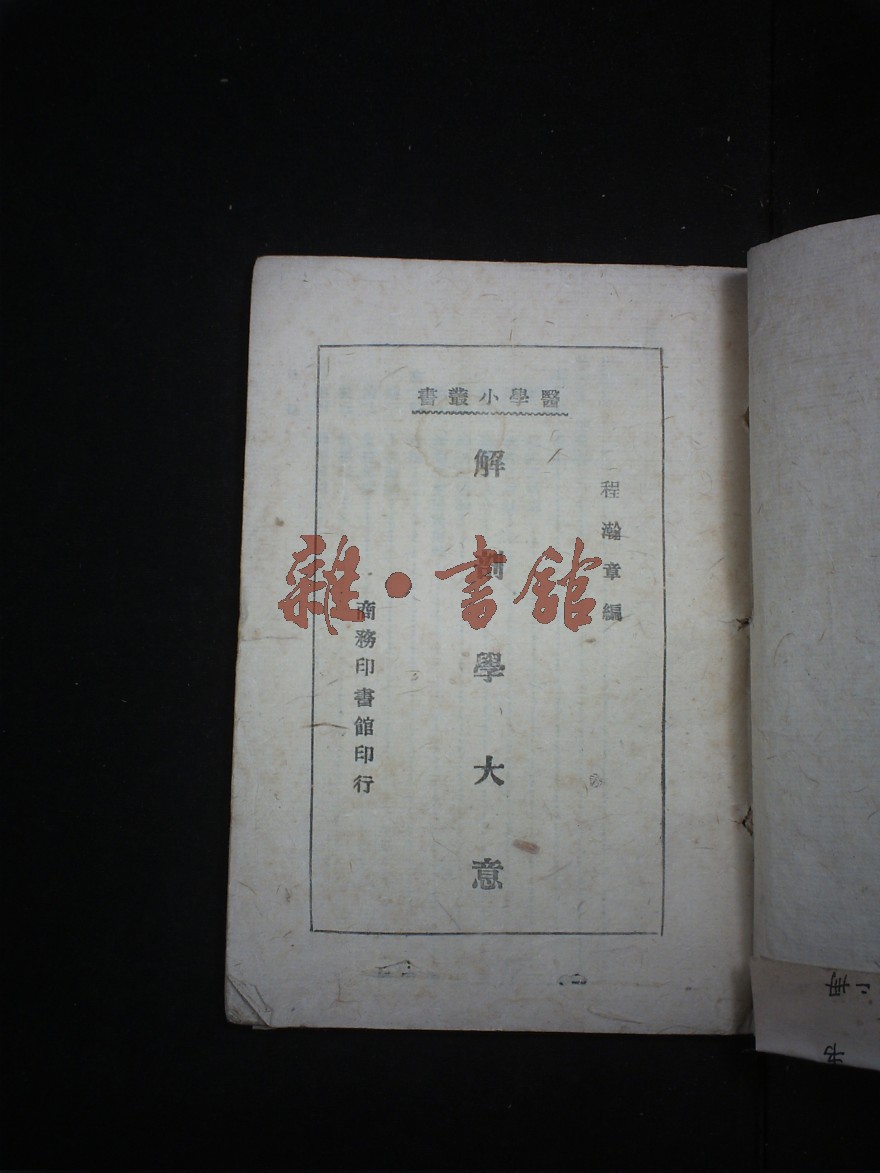 醫學小叢書
程瀚章編
解剖學大意
商務印書館印行
雜·書館